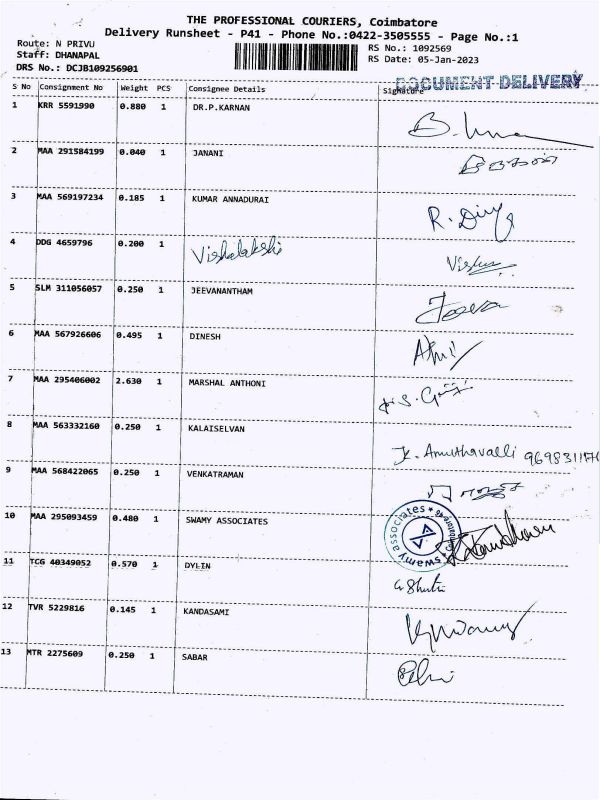 THE PROFESSIONAL COURIERS, Coimbatore
Delivery Runsheet - P41 - Phone No.:0422-3505555 - Page No.:1
Route: N PRIVU
Staff: DHANAPAL
DRS No.: DCJB109256901
RS No.: 1092569
RS Date: 05-Jan-2023
DOCUMENT DELIVERY
S No Consignment No Weight PCS Consignee Details Signature
1 KRR 5591990 0.880 1 DR.P.KARNAN
2 MAA 291584199 0.040 1 JANANI
3 MAA 569197234 0.185 1 KUMAR ANNADURAI R. Divya
4 DDG 4659796 0.200 1 Vishalakshi
5 SLM 311056057 0.250 1 JEEVANANTHAM Jeeva
6 MAA 567926606 0.495 1 DINESH
7 MAA 295406002 2.630 1 MARSHAL ANTHONI
8 MAA 563332160 0.250 1 KALAISELVAN K. Amuthavalli
9 MAA 568422065 0.250 1 VENKATRAMAN
10 MAA 295093459 0.480 1 SWAMY ASSOCIATES swamy associates
11 TCG 40349052 0.570 1 DYLIN
12 TVR 5229816 0.145 1 KANDASAMI
13 MTR 2275609 0.250 1 SABAR